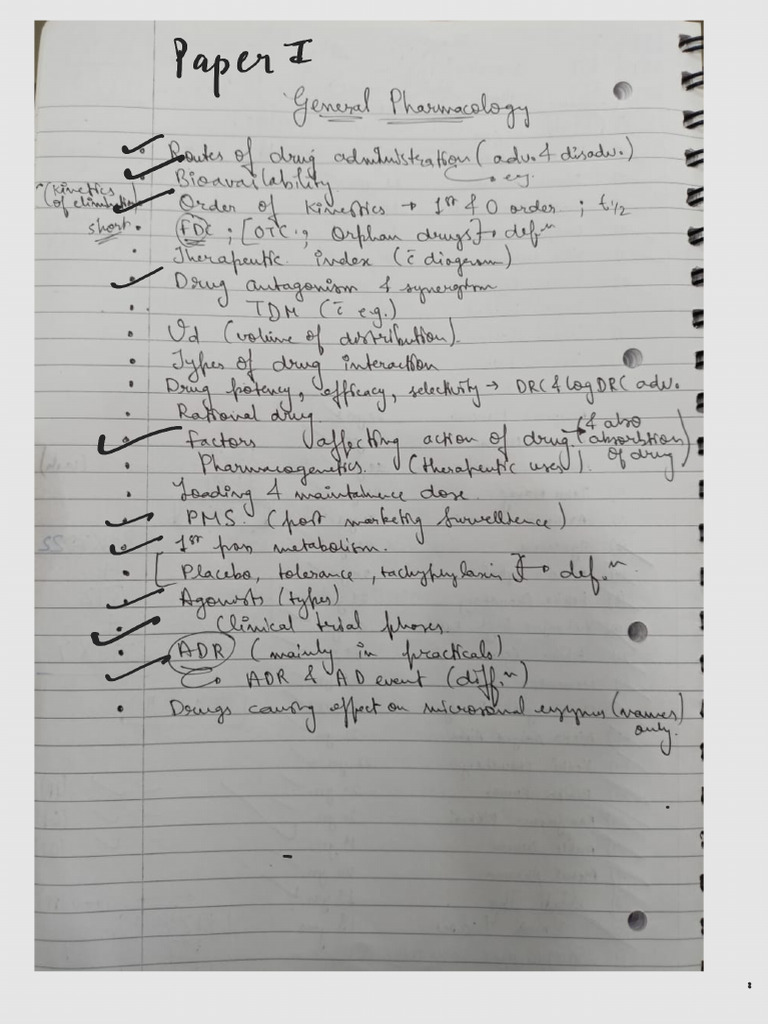 Paper I
General Pharmacology
Routes of drug administration (adv. & disadv.)
Bioavailability → eg.
(Kinetics of elimination) Order of kinetics → 1st & 0 order ; t1/2
short. FDC ; [OTC ; Orphan drugs] → defn
Therapeutic index (c̄ diagram)
Drug antagonism & synergism
TDM (c̄ eg.)
Vd (volume of distribution).
Types of drug interaction
Drug potency, efficacy, selectivity → DRC & log DRC adv.
Rational drug
Factors affecting action of drug → (& also absorbtion of drug)
Pharmacogenetics. (therapeutic uses).
Loading & maintainence dose.
PMS. (post marketing
1st pass metabolism.
[Placebo, tolerance, tachyphylaxis] → defn.
Agonists (types)
Clinical trial phases.
ADR (mainly in practicals)
→ ADR & AD event (diffn)
Drugs causing effect on microsomal enzymes (names) only.